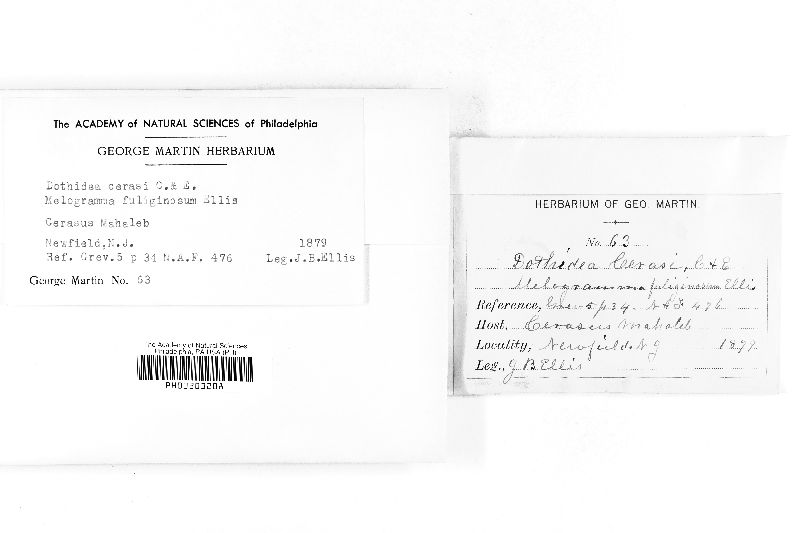 The ACADEMY of NATURAL SCIENCES of Philadelphia
GEORGE MARTIN HERBARIUM
Dothidea cerasi C.& E.
Melogramma fuliginosum Ellis
Cerasus Mahaleb
Newfield,N.J. 1879
Ref. Grev.5 p 34 N.A.F. 476 Leg.J.B.Ellis
George Martin No. 63
The Academy of Natural Sciences
Philadelphia, PA USA (PH)
HERBARIUM OF GEO. MARTIN.
No. 63
Dothidea Cerasi, C & E
Melogramma fuliginosum Ellis
Reference, Grev 5 p 34. N A F 476
Host, Cerasus Mahaleb
Locality, Newfield. N J 1879
Leg., J B Ellis